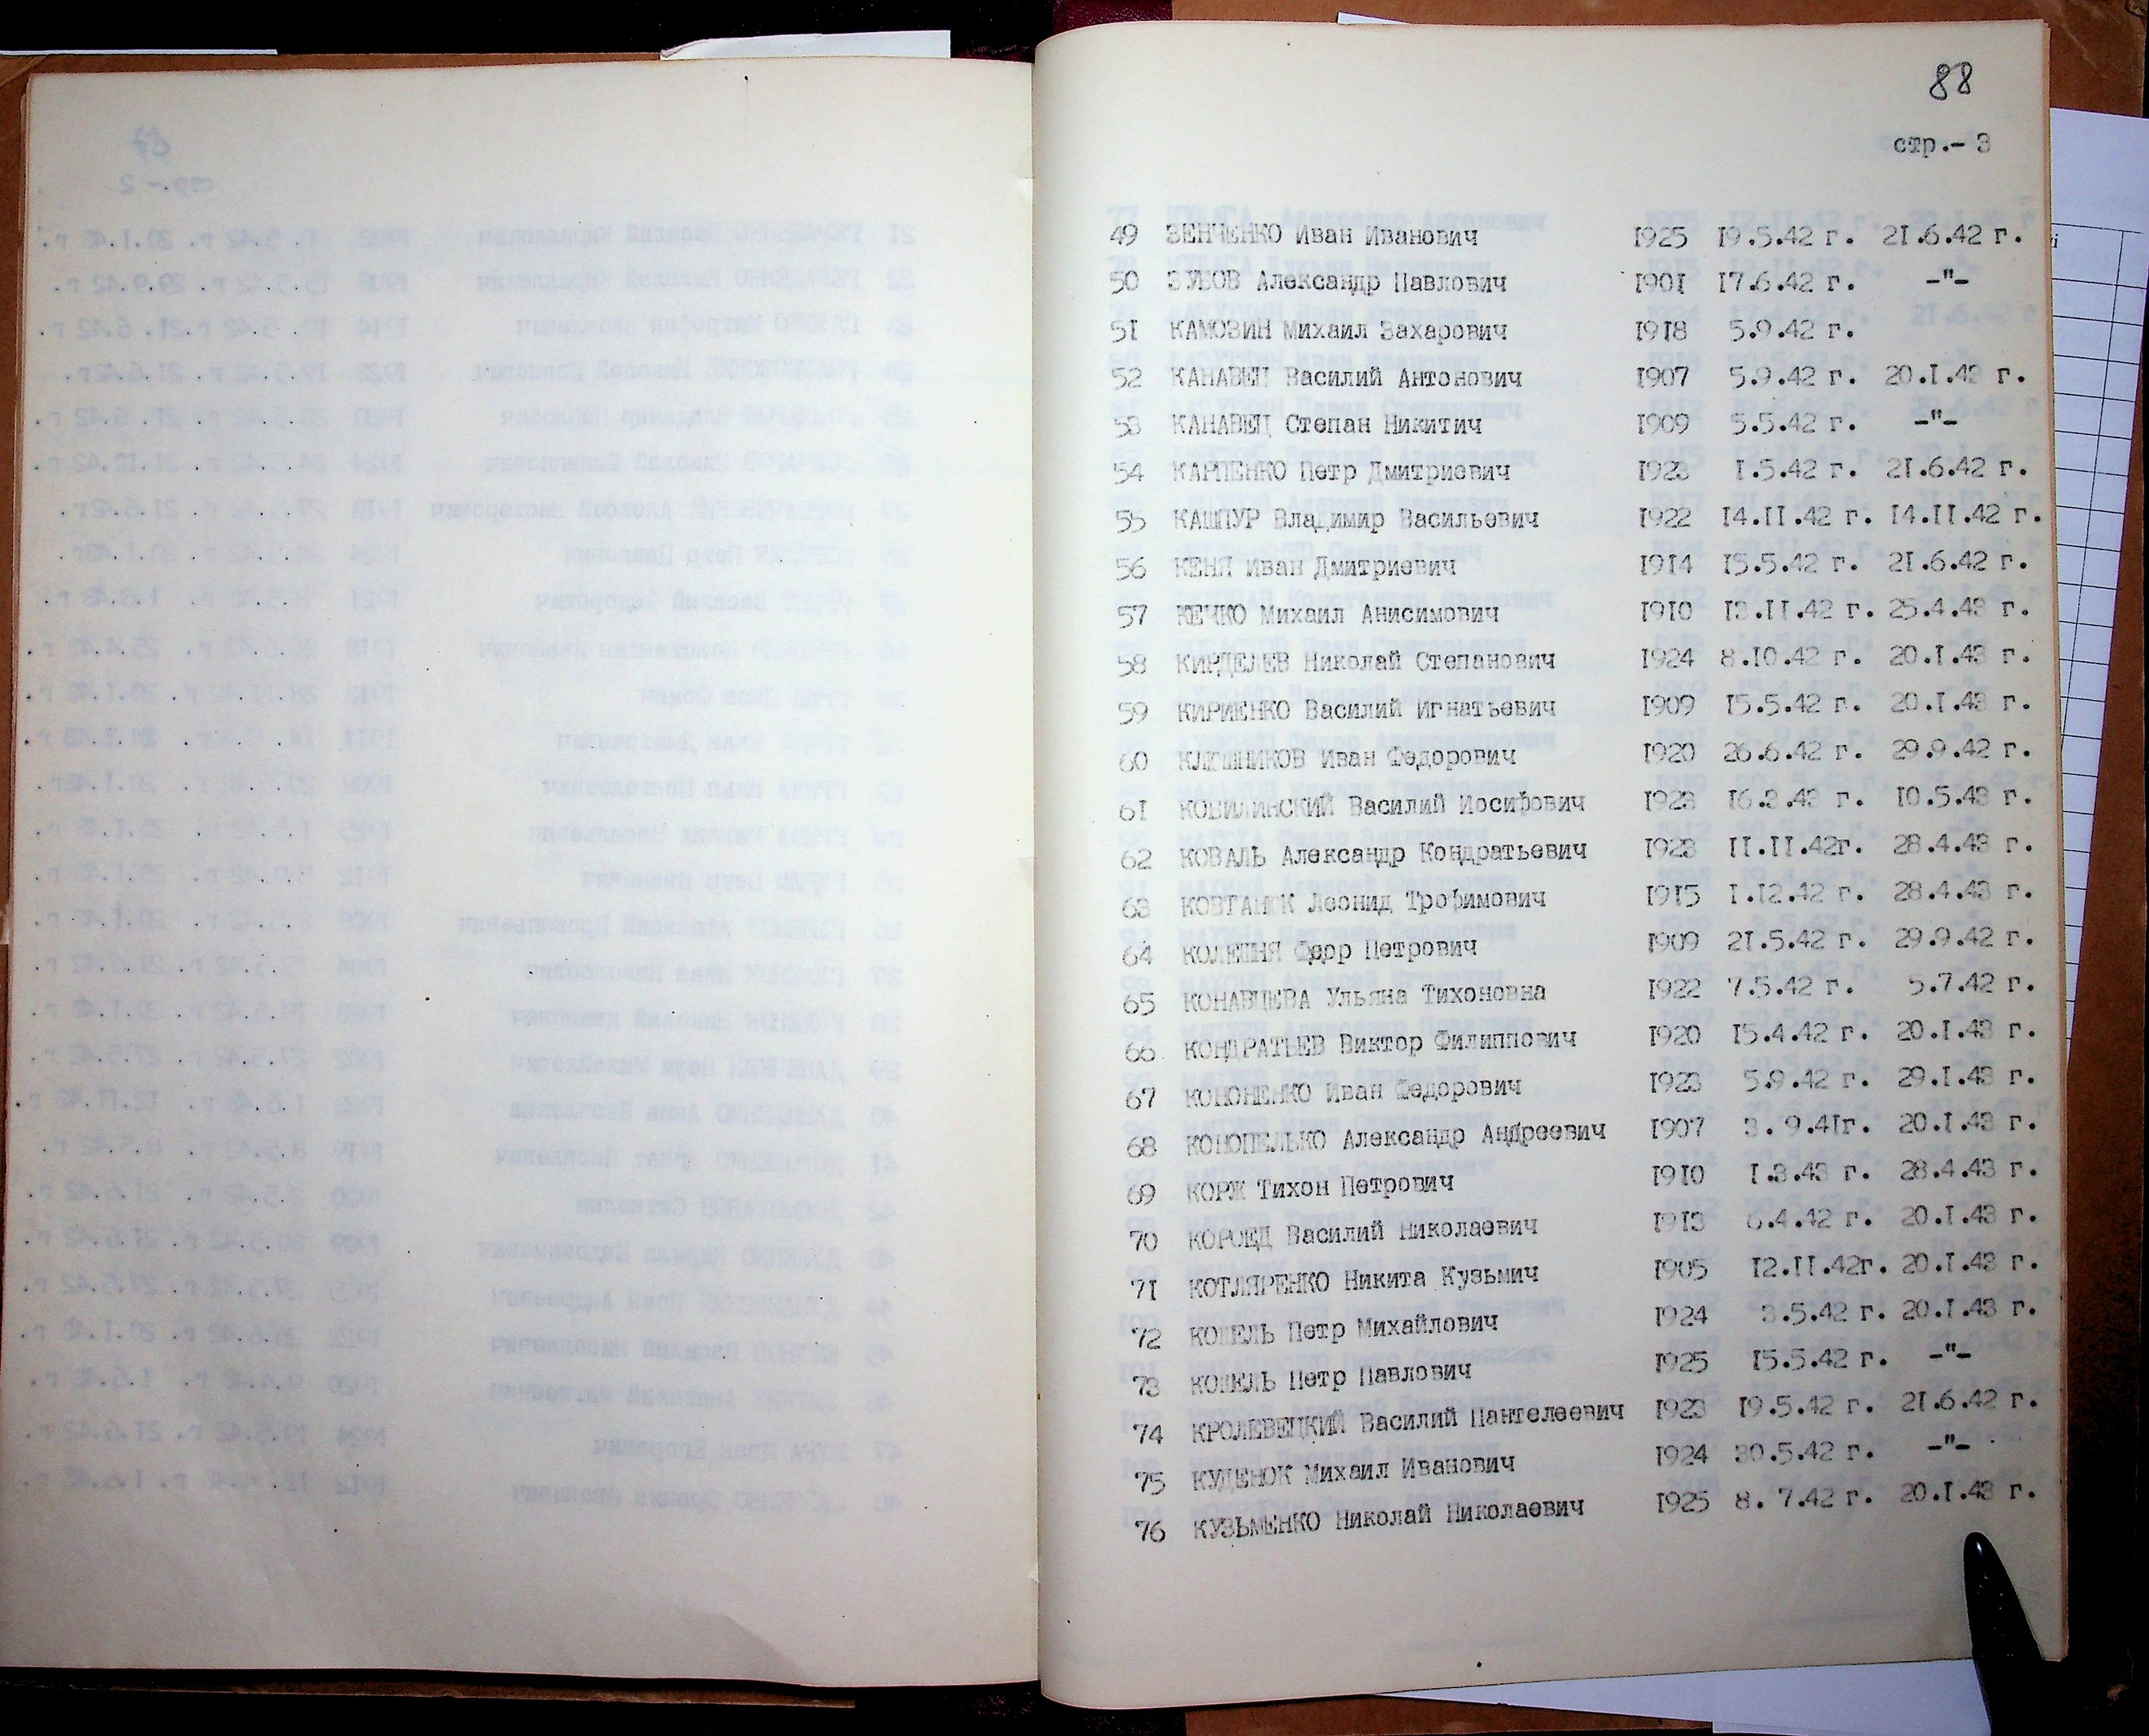 88
стр.- 3
49 ЗЕНЧЕНКО Иван Иванович 1925 19.5.42 г. 21.6.42 г.
50 ЗУБОВ Александр Павлович 1901 17.6.42 г. -"-
51 КАМОЗИН Михаил Захарович 1918 5.9.42 г.
52 КАНАВЕЦ Василий Антонович 1907 5.9.42 г. 20.1.43 г.
53 КАНАВЕЦ Степан Никитич 1909 5.5.42 г. -"-
54 КАРПЕНКО Петр Дмитриевич 1923 1.5.42 г. 21.6.42 г.
55 КАШПУР Владимир Васильевич 1922 14.11.42 г. 14.11.42 г.
56 КЕНЯ Иван Дмитриевич 1914 15.5.42 г. 21.6.42 г.
57 КЕЧКО Михаил Анисимович 1910 13.11.42 г. 25.4.43 г.
58 КИРДЕЛЕВ Николай Степанович 1924 8.10.42 г. 20.1.43 г.
59 КИРИЕНКО Василий Игнатьевич 1909 15.5.42 г. 20.1.43 г.
60 КЛЮШНИКОВ Иван Федорович 1920 26.6.42 г. 29.9.42 г.
61 КОБИЛИНСКИЙ Василий Иосифович 1923 16.3.43 г. 10.5.43 г.
62 КОВАЛЬ Александр Кондратьевич 1923 11.11.42г. 28.4.43 г.
63 КОВТАНЮК Леонид Трофимович 1915 1.12.42 г. 28.4.43 г.
64 КОЛЕШНЯ Петрович 1909 21.5.42 г. 29.9.42 г.
65 КОНАВЦЕВА Ульяна Тихоновна 1922 7.5.42 г. 5.7.42 г.
66 КОНДРАТЬЕВ Виктор Филиппович 1920 15.4.42 г. 20.1.43 г.
67 КОНОНЕНКО Иван Федорович 1923 5.9.42 г. 29.1.43 г.
68 КОНОПЕЛЬКО Александр Андреевич 1907 3. 9.41г. 20.1.43 г.
69 КОРЖ Тихон Петрович 1910 1.3.43 г. 28.4.43 г.
70 КОРОЕД Василий Николаевич 1913 6.4.42 г. 20.1.43 г.
71 КОТЛЯРЕНКО Никита Кузьмич 1905 12.11.42г. 20.1.43 г.
72 КОШЕЛЬ Петр Михайлович 1924 3.5.42 г. 20.1.43 г.
73 КОШЕЛЬ Петр Павлович 1925 15.5.42 г. -"-
74 КРОЛЕВЕЦКИЙ Василий Пантелеевич 1923 19.5.42 г. 21.6.42 г.
75 КУДЕНОК Михаил Иванович 1924 30.5.42 г. -"-
76 КУЗЬМЕНКО Николай Николаевич 1925 8. 7.42 г. 20.1.43 г.